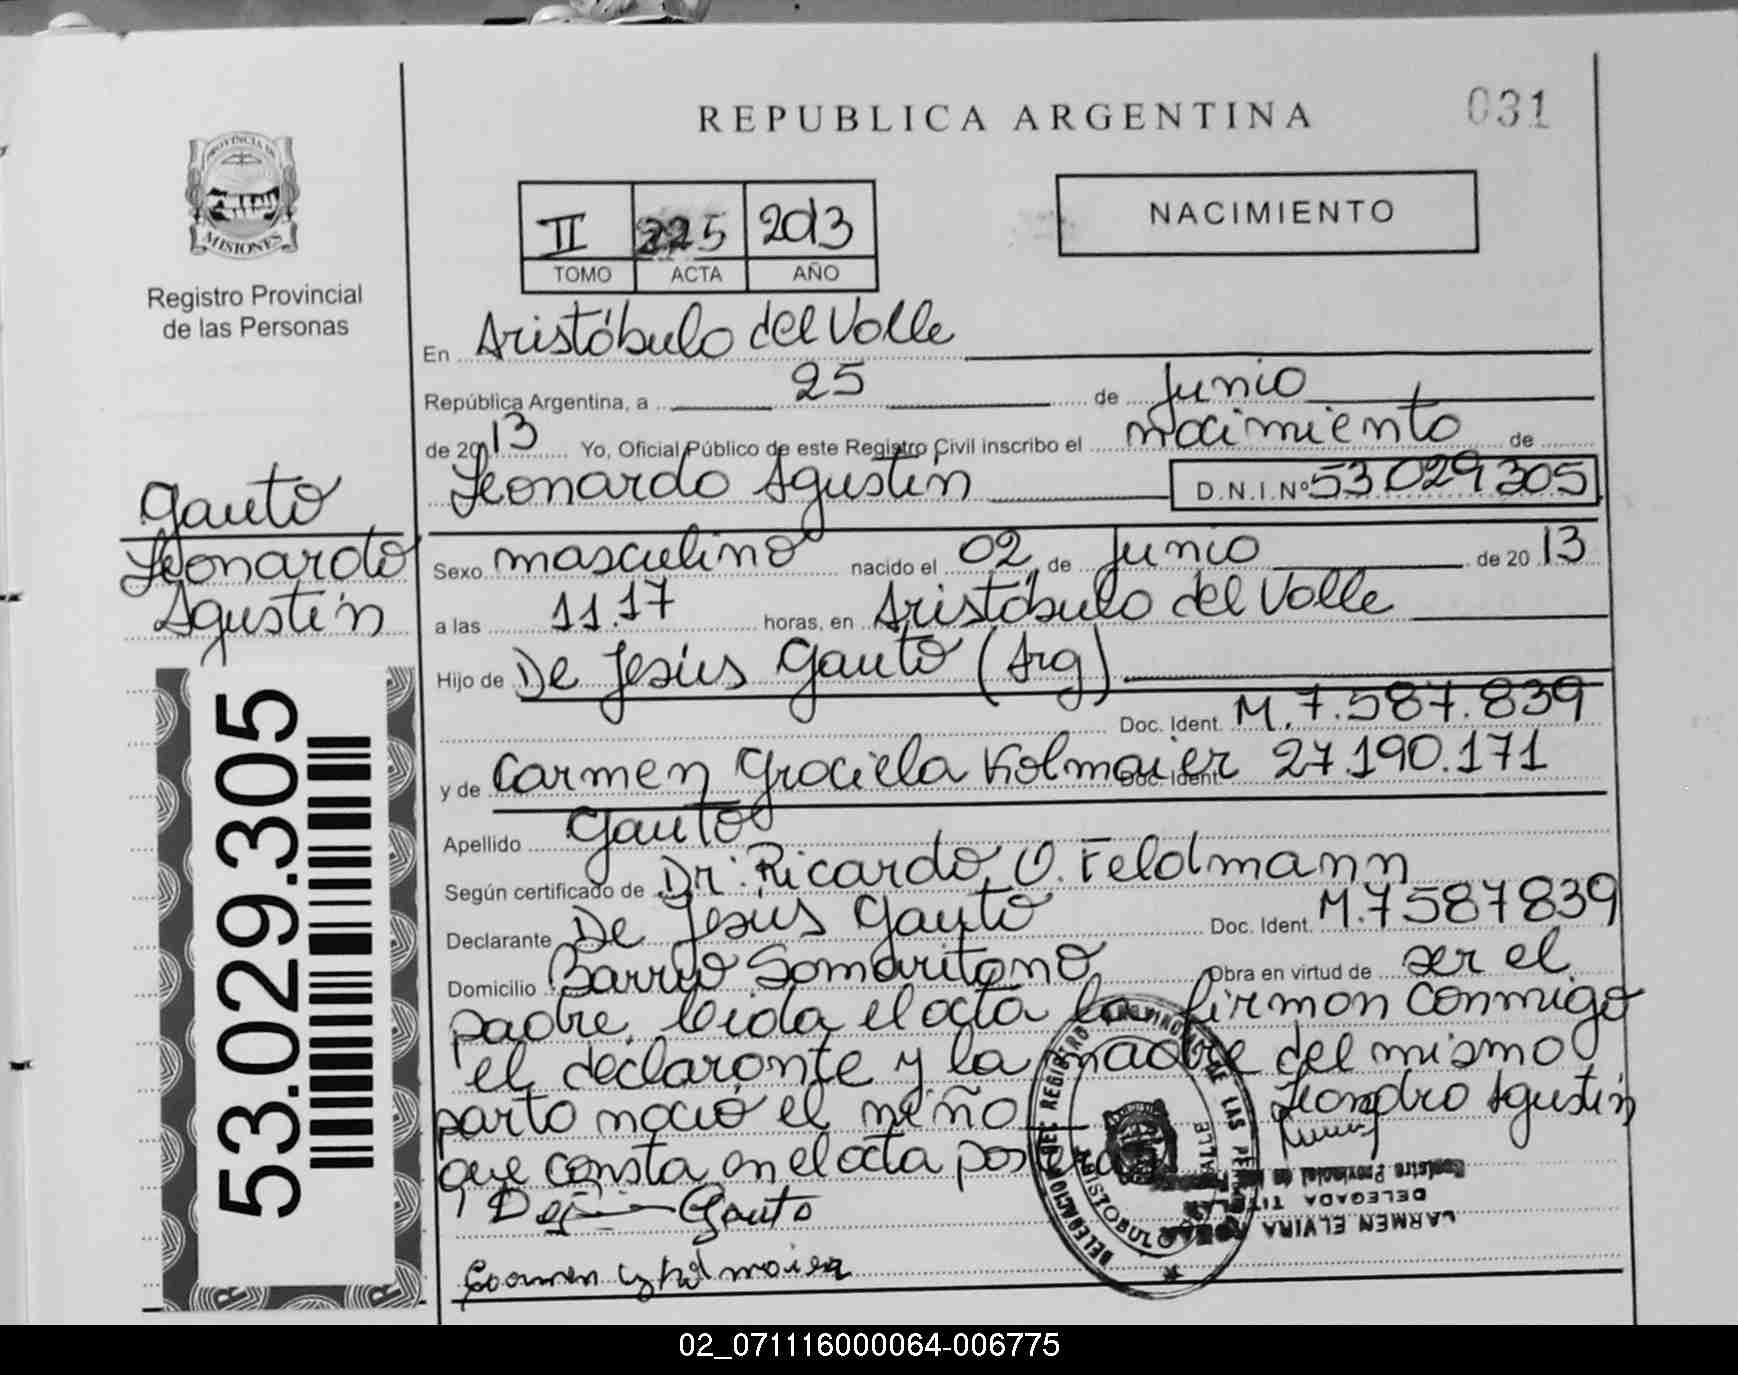 REPUBLICA ARGENTINA
031
PROVINCIA DE
MISIONES
Registro Provincial
de las Personas
II 225 2013
TOMO ACTA AÑO
NACIMIENTO
En Aristóbulo del Valle
República Argentina, a 25 de Junio
de 2013 Yo, Oficial Público de este Registro Civil inscribo el nacimiento de
Leonardo Agustin D.N.I.Nº 53 029 305
Gauto
Leonardo
Agustín
Sexo masculino nacido el 02 de Junio de 2013
a las 11.17 horas, en Aristóbulo del Valle
Hijo de De Jesús Gauto (Arg)
Doc. Ident. M.7.587.839
y de Carmen Graciela Kolmaier Doc. Ident. 27.190.171
Apellido Gauto
Según certificado de Dr. Ricardo O. Feldmann
Declarante De Jesus Gauto Doc. Ident. M.7587839
Domicilio Barrio Samaritano Obra en virtud de ser el
padre, leida el acta la firman conmigo
el declarante y la madre del mismo
parto nació el niño Leandro Agustin
que consta en el acta
Gauto
Carmen G Kolmaier
53.029.305
DELEGACION DEL REGISTRO PROVINCIAL DE LAS
ARISTOBULO VALLE
Registro Provincial de las
DELEGADA TITULAR
CARMEN ELVIRA
02_071116000064-006775